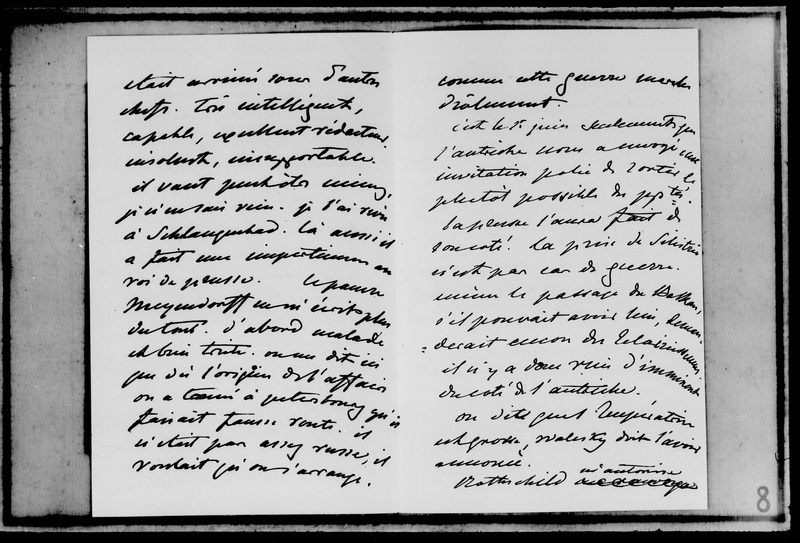 était arrivé sous d'autres
chefs. très intelligent,
capable, excellent rédacteur,
insolent, insupportable.
il vaut peut-être mieux,
je n'en sais rien. je l'ai vu
à Schlangenbad. là aussi il
a fait une impertinence au
roi de prusse. le pauvre
Meyendorff ne m'écrit plus
du tout. d'abord malade
et bien triste. on me dit ici
que dès l'origine de l'affaire
on a trouvé à petersbourg qu'il
faisait fausse route. il
n'était pas assez russe, il
voulait qu'on s'arrange.
comme cette guerre marche
drôlement.
c'est le 1er juin seulement que
l'autriche nous a envoyé une
invitation polie de sortir le
plutot possible des pptés.
la prusse l'aura fait de
son coté. la prise de Silistrie
n'est pas cas de guerre.
même le passage du Balkan,
s'il pouvait avoir lieu, deman=
=derait encore des éclaircissements.
il n'y a donc rien d'imminent
du coté de l'autriche.
on dit que l'Impératrice
est grosse, Walesky doit l'avoir
annoncé.
Rothschild m'autorise